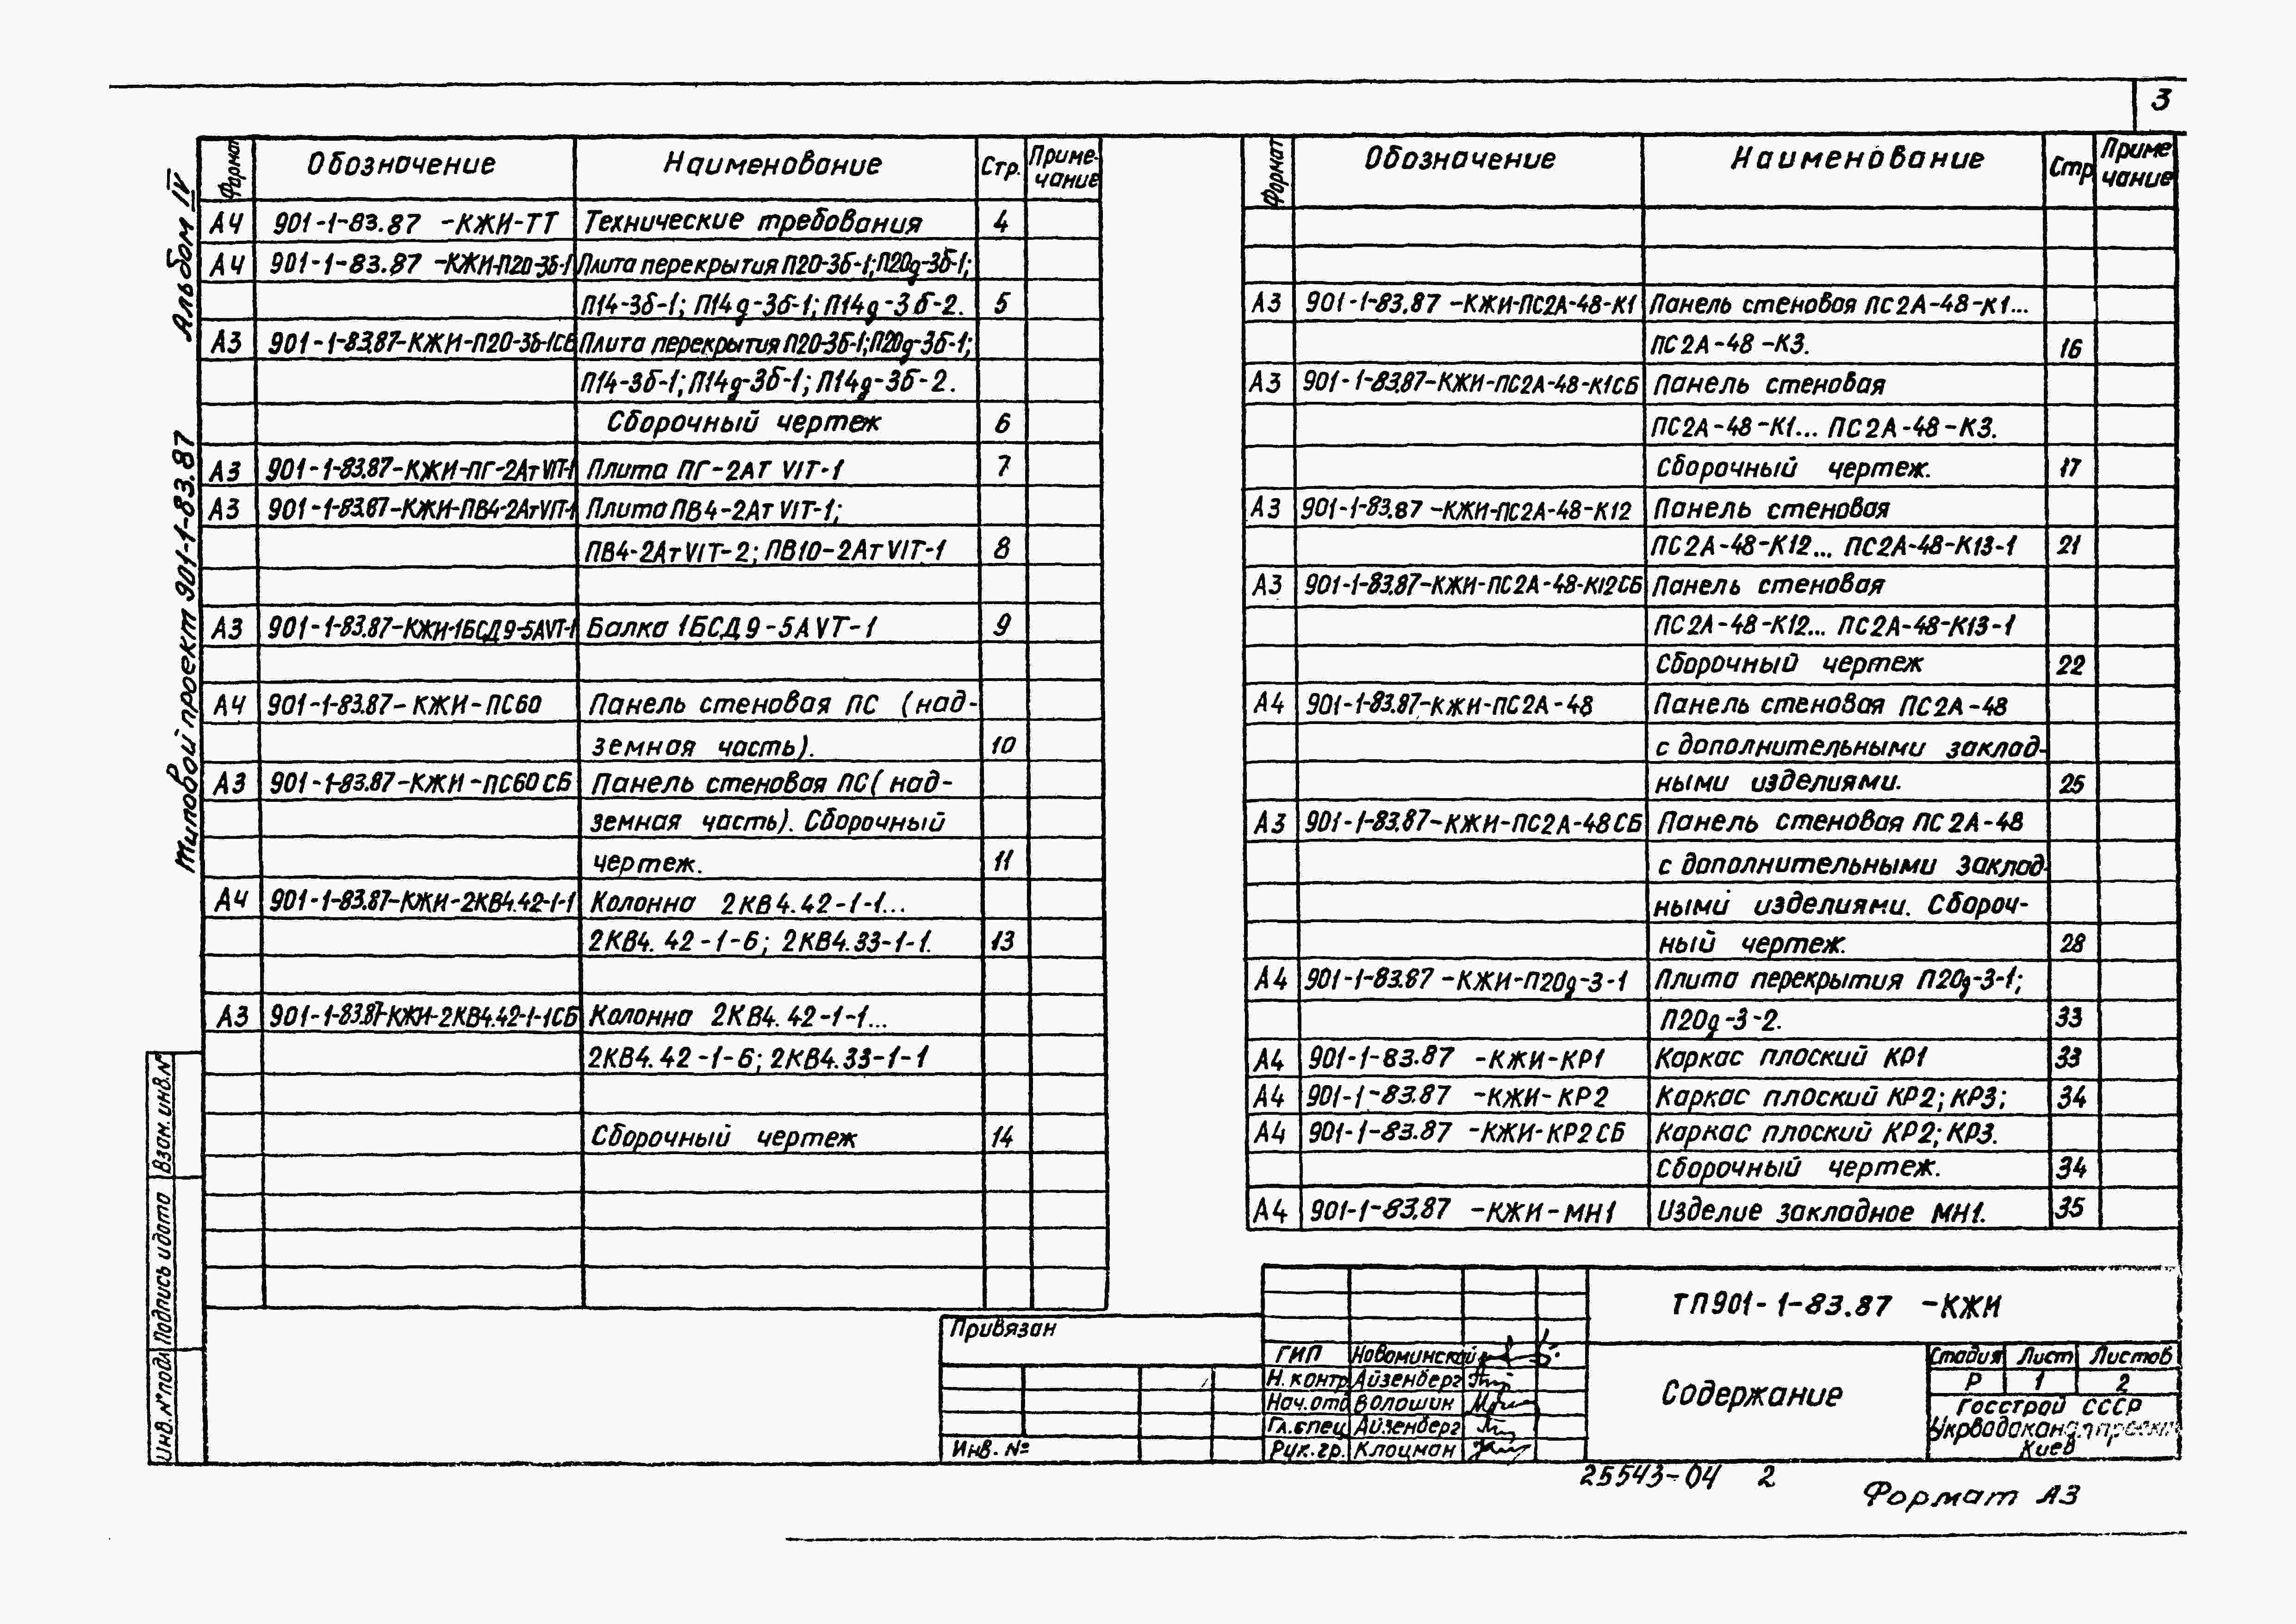 3
Альбом IV
Типовой проект 901-1-83.87
Формат Обозначение Наименование Стр. Приме-
чание
А4 901-1-83.87 -КЖИ-ТТ Технические требования 4
А4 901-1-83.87 -КЖИ-П20-3б-1 Плита перекрытия П20-3б-1; П20д-3б-1;
П14-3б-1; П14д-3б-1; П14д-3б-2. 5
А3 901-1-83.87-КЖИ-П20-3б-1СБ Плита перекрытия П20-3б-1; П20д-3б-1;
П14-3б-1; П14д-3б-1; П14д-3б-2.
Сборочный чертеж 6
А3 901-1-83.87-КЖИ-ПГ-2АтVIТ-1 Плита ПГ-2АТ VIТ-1 7
А3 901-1-83.87-КЖИ-ПВ4-2АтVIТ-1 Плита ПВ4-2Ат VIТ-1;
ПВ4-2АтVIТ-2; ПВ10-2АтVIТ-1 8
А3 901-1-83.87-КЖИ-1БСД9-5АVТ-1 Балка 1БСД9-5АVТ-1 9
А4 901-1-83.87-КЖИ-ПС60 Панель стеновая ПС (над-
земная часть). 10
А3 901-1-83.87-КЖИ-ПС60СБ Панель стеновая ПС (над-
земная часть). Сборочный
чертеж. 11
А4 901-1-83.87-КЖИ-2КВ4.42-1-1 Колонна 2КВ4.42-1-1...
2КВ4.42-1-6; 2КВ4.33-1-1. 13
А3 901-1-83.87-КЖИ-2КВ4.42-1-1СБ Колонна 2КВ4.42-1-1...
2КВ4.42-1-6; 2КВ4.33-1-1
Сборочный чертеж 14
Формат Обозначение Наименование Стр Приме
чание
А3 901-1-83.87-КЖИ-ПС2А-48-К1 Панель стеновая ПС2А-48-К1...
ПС2А-48-К3. 16
А3 901-1-83.87-КЖИ-ПС2А-48-К1СБ Панель стеновая
ПС2А-48-К1... ПС2А-48-К3.
Сборочный чертеж. 17
А3 901-1-83.87-КЖИ-ПС2А-48-К12 Панель стеновая
ПС2А-48-К12... ПС2А-48-К13-1 21
А3 901-1-83.87-КЖИ-ПС2А-48-К12СБ Панель стеновая
ПС2А-48-К12... ПС2А-48-К13-1
Сборочный чертеж 22
А4 901-1-83.87-КЖИ-ПС2А-48 Панель стеновая ПС2А-48
с дополнительными заклад-
ными изделиями. 25
А3 901-1-83.87-КЖИ-ПС2А-48СБ Панель стеновая ПС2А-48
с дополнительными заклад-
ными изделиями. Сбороч-
ный чертеж. 28
А4 901-1-83.87-КЖИ-П20д-3-1 Плита перекрытия П20д-3-1;
П20д-3-2. 33
А4 901-1-83.87 -КЖИ-КР1 Каркас плоский КР1 33
А4 901-1-83.87 -КЖИ-КР2 Каркас плоский КР2; КР3; 34
А4 901-1-83.87 -КЖИ-КР2СБ Каркас плоский КР2; КР3.
Сборочный чертеж. 34
А4 901-1-83.87 -КЖИ-МН1 Изделие закладное МН1. 35
Взам. инв. №
Подпись и дата
Инв. № подл
Привязан
Инв. №
ТП901-1-83.87 -КЖИ
ГИП Новоминской
Н. контр. Айзенберг
Нач. отд Волошин
Гл. спец Айзенберг
Рук. гр. Клоцман
Содержание
Стадия Лист Листов
Р 1 2
Госстрой СССР
Укрводоканалпроект
Киев
25543-04 2
Формат А3